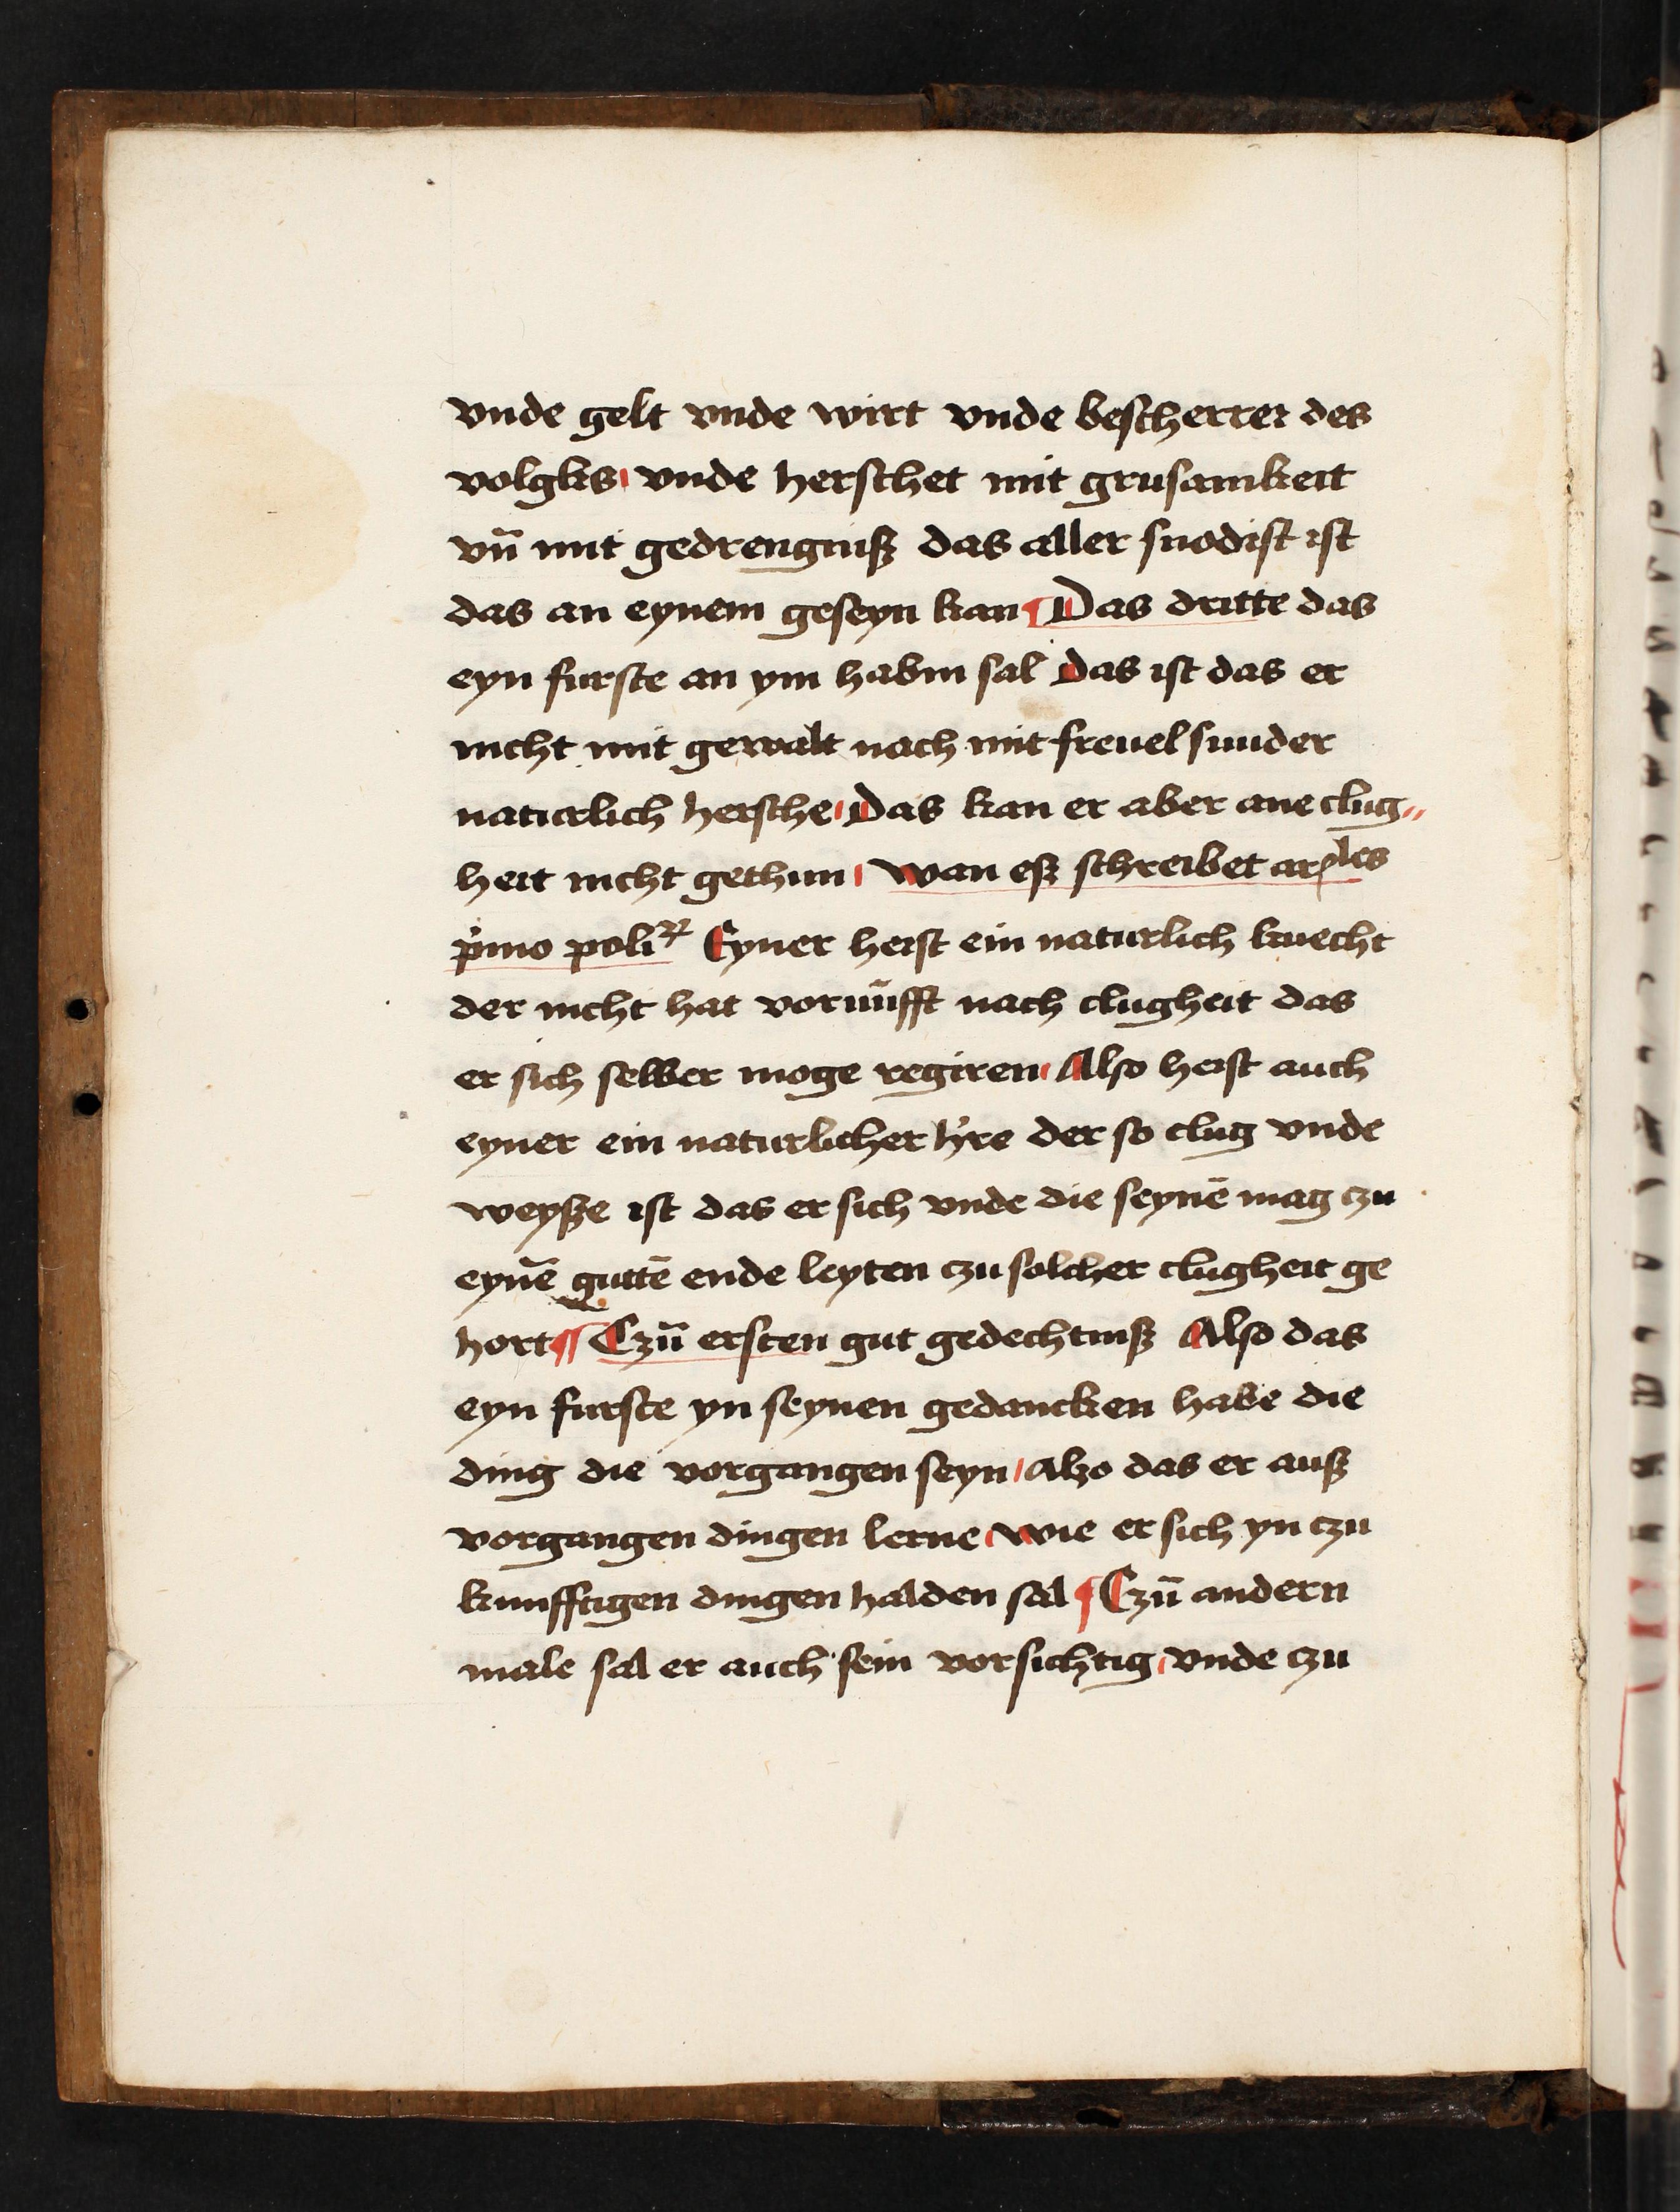 vnde gelt vnde wirt vnde bescherrer des
volgks vnde herschet mit grusamkeit
vn̄ mit gedrengniß das aller snodist ist
das an eynem geseyn kan ¶ Das dritte das
eyn furste an ym habin sal Das ist das er
nicht mit gewalt nach mit freuel sunder
naturlich hersche Das kan er aber ane clug〃
heit nicht gethun Wan eß schreibet arꝑles
pͥmo poliꝝ Eyner heist ein naturlich knecht
der nicht hat vornūfft nach clugheit das
er sich selber moge regiren Also heist auch
eyner ein naturlicher h're der so clug vnde
weyße ist das er sich vnde die seynē mag czu
eynē guttē ende leyten czu solcher clugheit ge
hort ¶ Czū ersten gut gedechtniß Also das
eyn furste yn seynen gedancken habe die
ding die vorgangen seyn Alzo das er auß
vorgangen dingen lerne wie er sich yn czu
kunfftigen dingen halden sal ¶ Czū andern
male sal er auch sein vorsichtig vnde czu